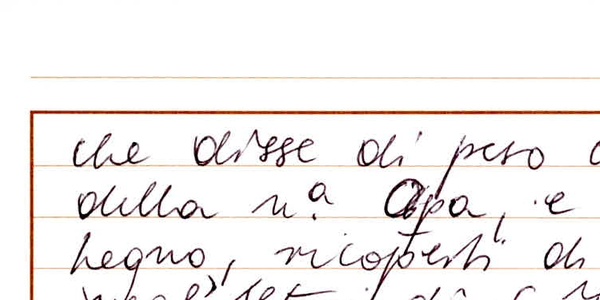 che disse di peso
della n.a Apa, e
legno, ricoperti di